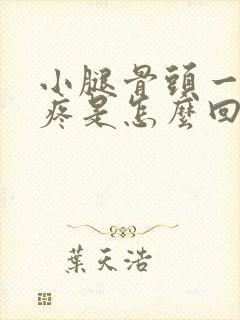 小腿骨頭一
疼是怎麼回
葉天浩